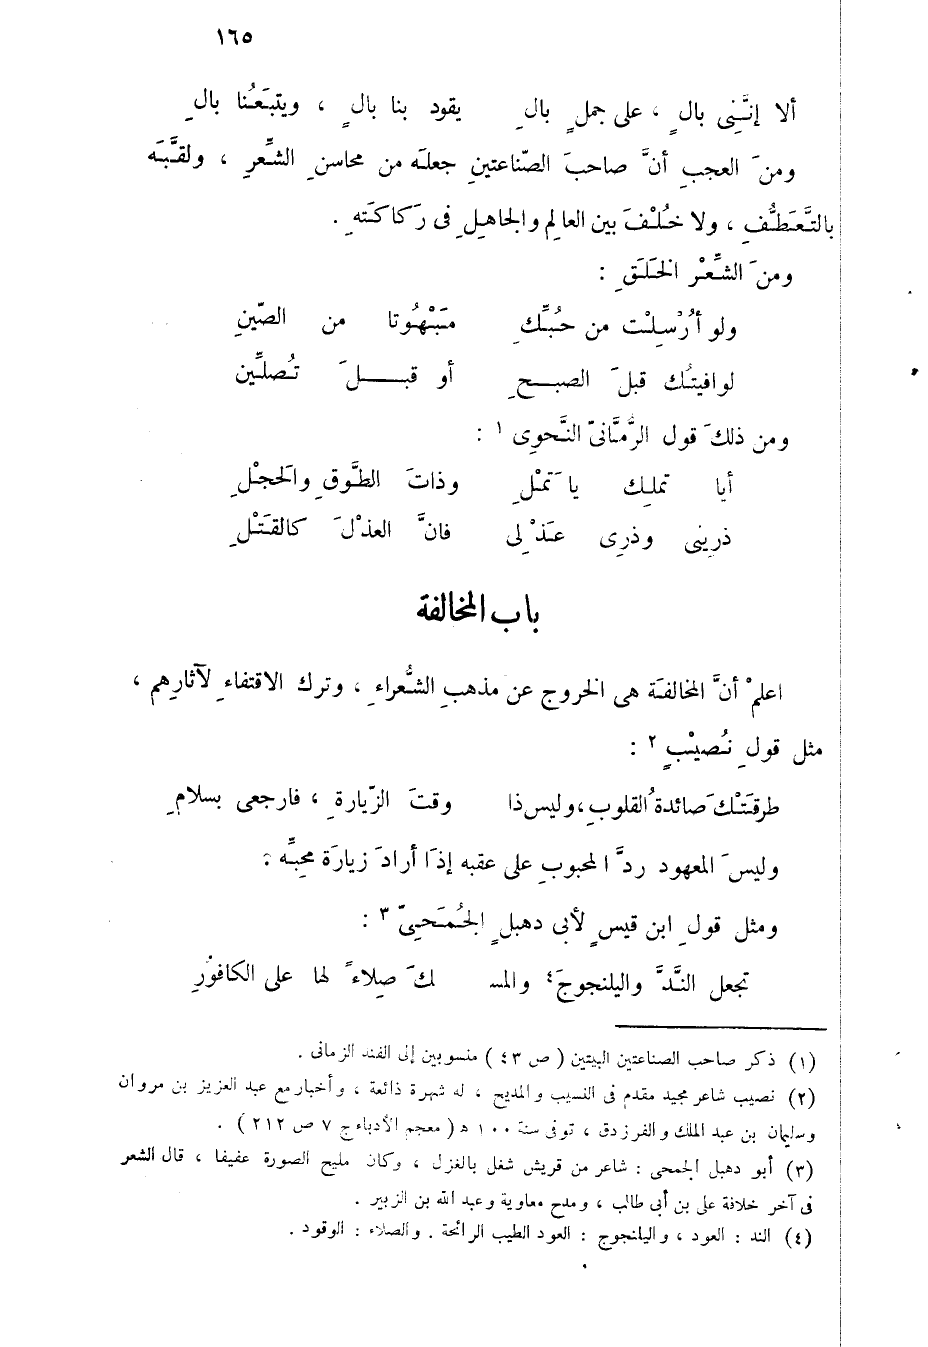 ١٦٥
ألا إنَّنِى بالٍ ، على جملٍ بالِ يقود بنا بالٍ ، ويتبَعُنا بالِ
ومنَ العجبِ أنَّ صاحبَ الصّناعتينِ جعلَه من محاسنِ الشِّعرِ ، ولقَّبَه
بالتَّعَطُّفِ ، ولا خُلْفَ بين العالِم والجاهلِ فى رَكاكَتَهِ .
ومنَ الشِّعْر الخَلَقِ :
ولو أُرْسِلْت من حُبِّكِ مَبْهُوتا من الصّينِ
لوافيتُك قبلَ الصبـحِ أو قبــلَ تُصلِّين
ومن ذلكَ قول الرُّمَّانىّ النَّحوِى ١ :
أيا تملِك يا تَمْلِ وذاتَ الطَّوق والحَجْلِ
ذرِينى وذرِى عَذْلِى فانَّ العذْلَ كالقَتْلِ
باب المخالفة
اعلمْ أنَّ المخالفَة هى الخروج عن مذهبِ الشُّعراءِ ، وترك الاقتفاءِ لآثارِهم ،
مثل قولِ نُصيْبٍ ٢ :
طرقَتْكَ صائدةُ القلوبِ،وليس ذا وقتَ الزّيارةِ ، فارجعى بسلامِ
وليسَ المعهود ردَّ المحبوبِ على عقبه إذَا أرادَ زيارَة محبِّه .
ومثل قولِ ابن قيسٍ لأبى دهبلٍ الجُمَحِىّ ٣ :
تجعل النَّدَّ واليلنجوجَ٤ والمسـ ـكَ صِلاءً لها على الكافُورِ
(١) ذكر صاحب الصناعتين البيتين ( ص ٤٣ ) منسوبين إلى الفند الزمانى .
(٢) نصيب شاعر مجيد مقدم فى النسيب والمديح ، له شهرة ذائعة ، وأخبار مع عبد العزيز بن مروان
وسليمان بن عبد الملك والفرزدق ، توفى سنة ١٠٠ ه ( معجم الأدباء ج ٧ ص ٢١٢ ) .
(٣) أبو دهبل الجمحى : شاعر من قريش شغل بالغزل ، وكان مليح الصورة عفيفا ، قال الشعر
فى آخر خلافة على بن أبى طالب ، ومدح معاوية وعبد الله بن الزبير .
(٤) الند : العود ، واليلنجوج : العود الطيب الرائحة . والصلاء : الوقود .